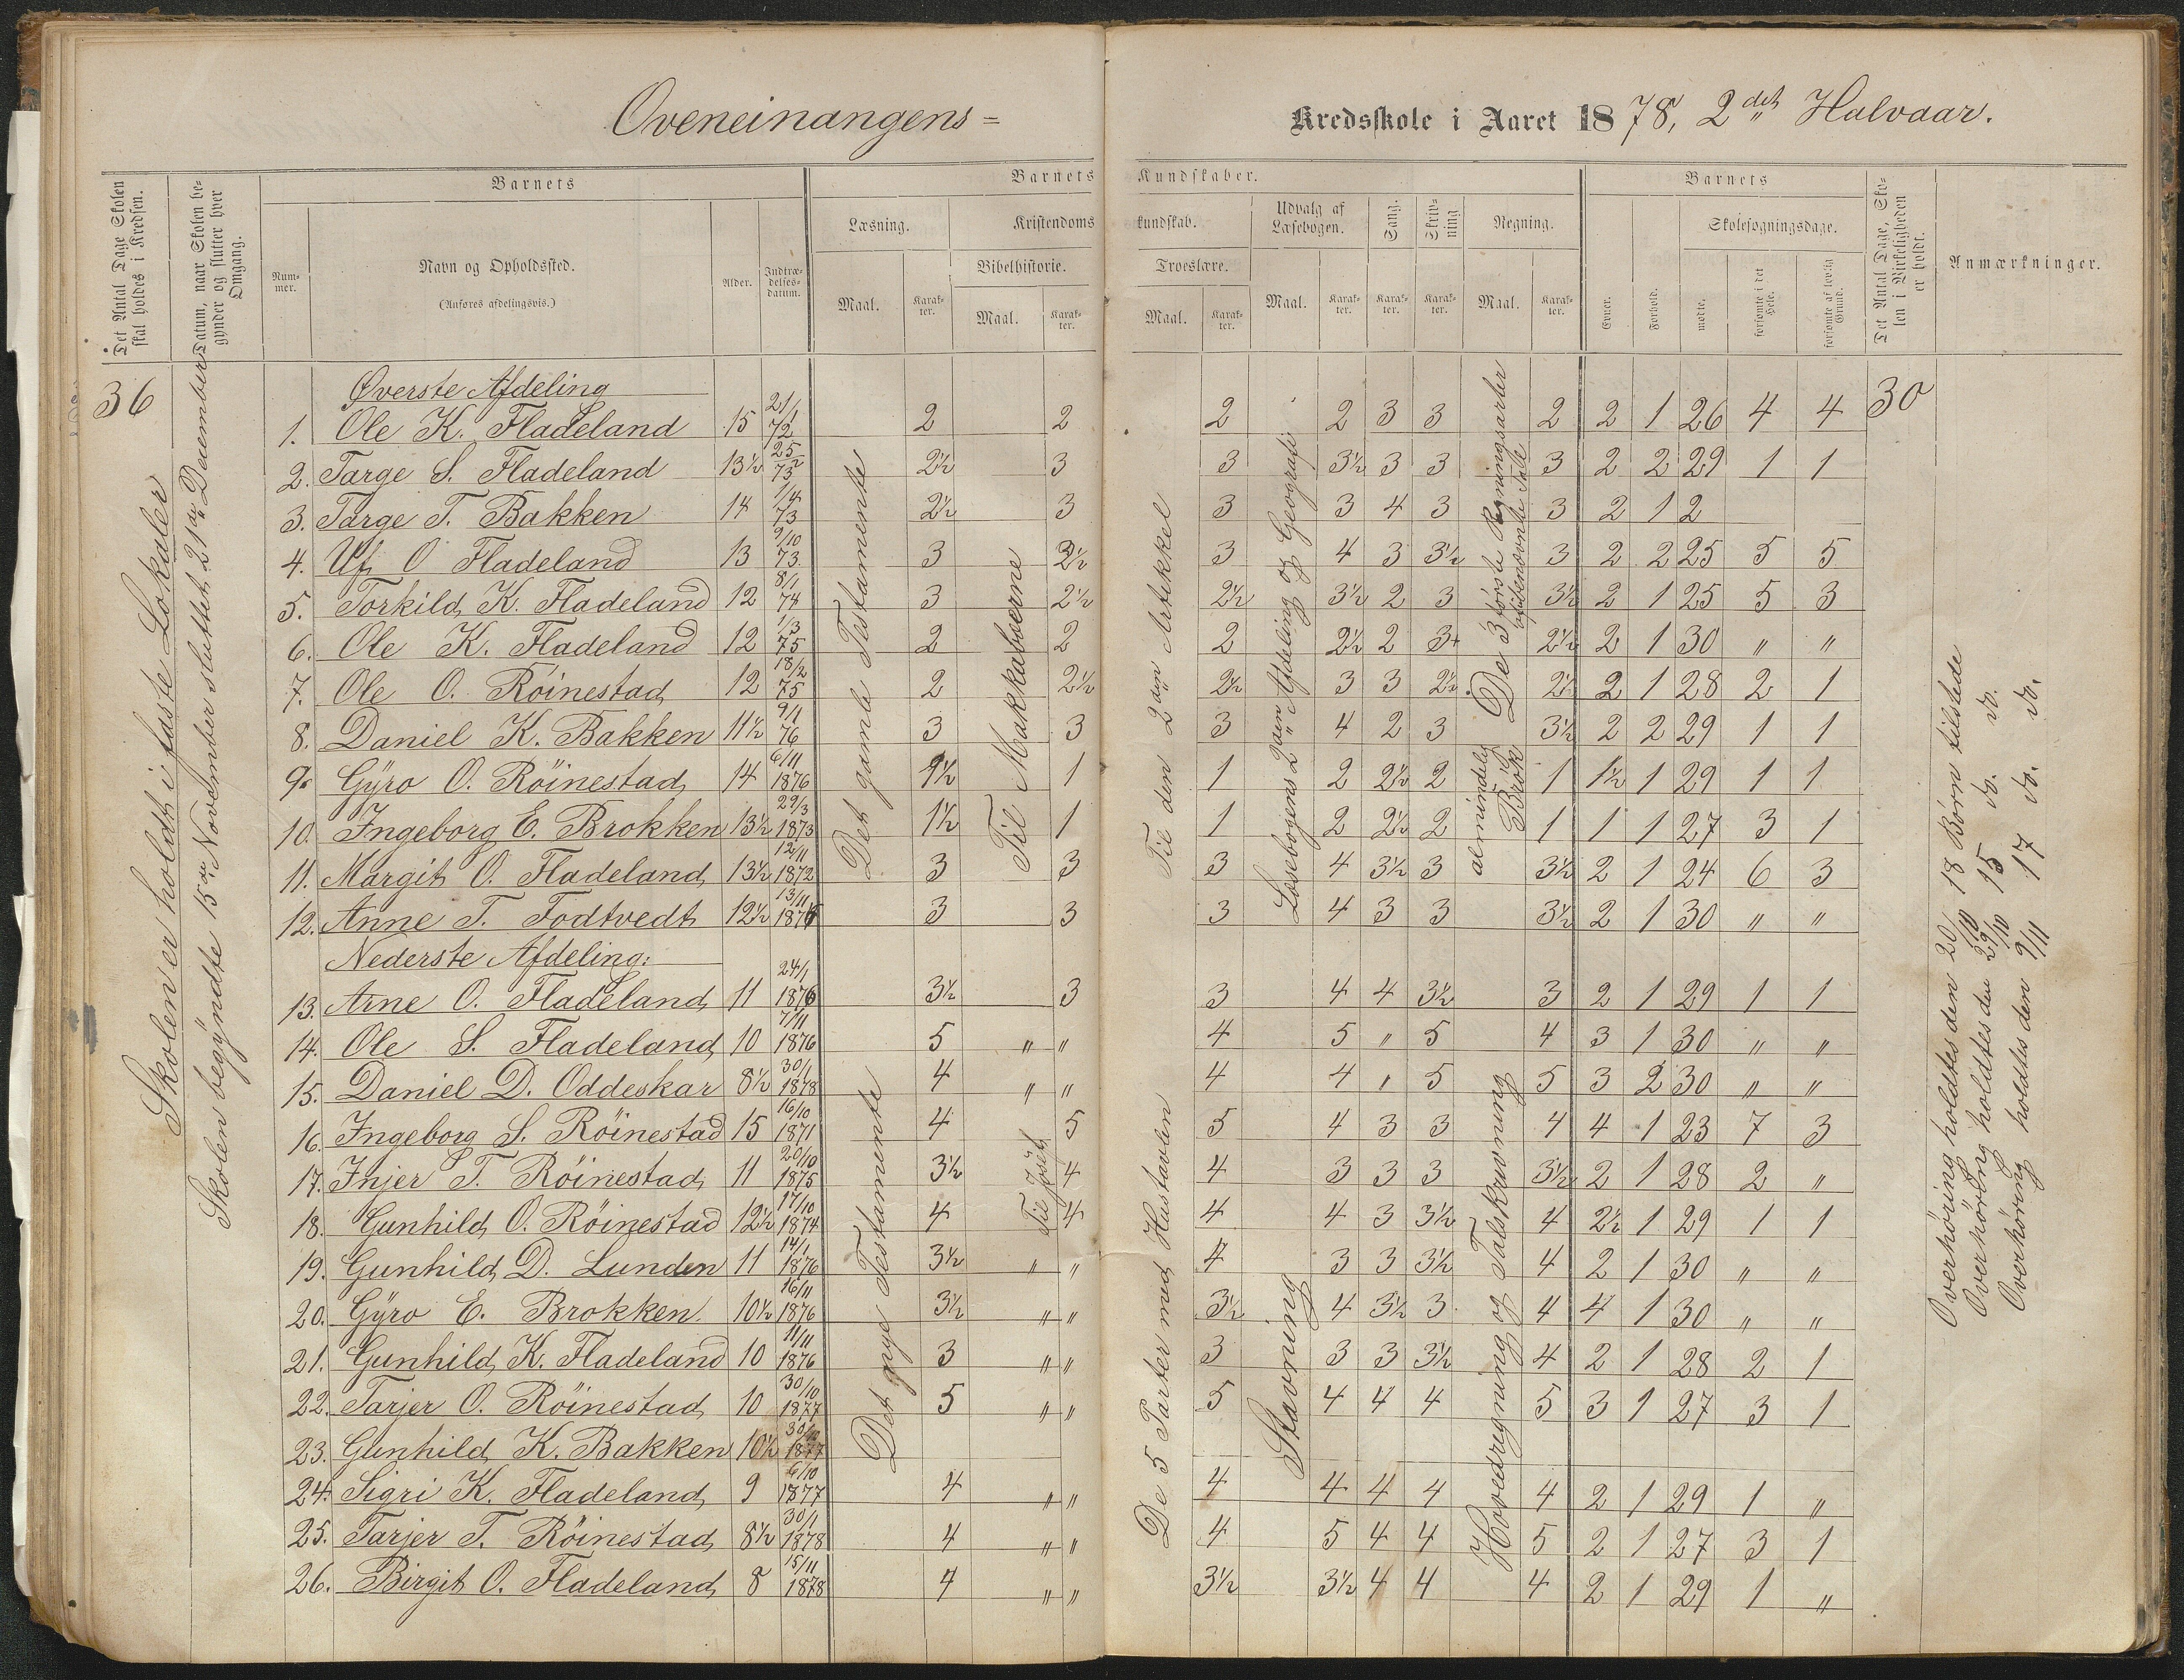 Oveneinangens= Kredsskole i Aaret 1878, 2det Halvaar.
Det Antal Dage Skolen skal holdes i Kredsen.
Datum, naar Skolen begynder og slutter hver Omgang.
Barnets
Nummer.
Navn og Opholdssted.
(Anføres afdelingsvis.)
Alder.
Indtrædelsesdatum.
Barnets Kundskaber.
Læsning.
Maal.
Karakter.
Kristendomskundskab.
Bibelhistorie.
Maal.
Karakter.
Troeslære.
Maal.
Karakter.
Udvalg af Læsebogen.
Maal.
Karakter.
Sang.
Karakter.
Skrivning
Karakter.
Regning.
Maal.
Karakter.
Barnets
Evner.
Forhold.
Skolesøgningsdage.
mødte.
forsømte i det Hele.
forsømte af lovlig Grund.
Det Antal Dage, Skolen i Virkeligheden er holdt.
Anmærkninger.
36
Skolen er holdt i faste Lokaler
Skolen begÿndte 15de November sluttet 21de December
Øverste Afdeling
1. Ole K. Fladeland 15 21/1 72 2 2 2 2 3 3 2 2 1 26 4 4 30
2. Targe S. Fladeland 13½ 25/2 73 2½ 3 3 3½ 3 3 3 2 2 29 1 1
3. Targe T. Bakken 14 1/4 73 2½ 3 3 3 4 3 3 2 1 2
4. Ulf O Fladeland 13 9/10 73. 3 2½ 3 4 3 3½ 3 2 2 25 5 5
5. Torkild K. Fladeland 12 8/1 74 3 2½ 2½ 3½ 2 3 3½ 2 1 25 5 3
6. Ole K. Fladeland 12 1/3 75 2 2 2 2½ 2 3+ 2½ 2 1 30 " "
7. Ole O. Röinestad 12 18/2 75 2 2½ 2½ 3 3 2½ 2½ 2 1 28 2 1
8. Daniel K. Bakken 11½ 9/1 76 3 3 3 4 2 3 3½ 2 2 29 1 1
9. Gÿro O. Röinestad 14 6/11 1876 1½ 1 1 2 2½ 2 1 1½ 1 29 1 1
10. Ingeborg E. Brokken 13½ 29/3 1873 1½ 1 1 2 2½ 2 1 1 1 27 3 1
11. Margit O. Fladeland 13½ 12/11 1872 3 3 3 4 3½ 3 3½ 2 1 24 6 3
12. Anne T. Fodtvedt 12½ 13/11 1876 3 3 3 4 3 3 3½ 2 1 30 " "
Det gamle Testamente
Til Makkabæerne
Til den 2den Artikkel
Læsebogens 2den Afdeling og Geografi
De 3 første Regningsarter
almindelig Brök
Nederste Afdeling:
13. Arne O. Fladeland 11 24/1 1876 3½ 3 3 4 4 3½ 3 2 1 29 1 1
14. Ole S. Fladeland 10 7/11 1876 5 " " 4 5 " 5 4 3 1 30 " "
15. Daniel D. Oddeskar 8½ 30/1 1878 4 " " 4 4 " 5 5 3 2 30 " "
16. Ingeborg S. Röinestad 15 16/10 1871 4 5 5 4 3 3 4 4 1 23 7 3
17. Injer T. Röinestad 11 20/10 1875 3½ 4 4 3 3 3 3½ 2 1 28 2 "
18. Gunhild O. Röinestad 12½ 17/10 1874 4 4 4 4 3 3½ 4 2½ 1 29 1 1
19. Gunhild D. Lunden 11 14/1 1876 3½ " " 4 3 3 3½ 4 2 1 30 " "
20. Gÿro E. Brokken. 10½ 16/11 1876 3½ " " 3½ 4 3½ 3 4 4 1 30 " "
21. Gunhild K. Fladeland 10 11/11 1876 3 " " 3 3 3 3½ 4 2 1 28 2 1
22. Tarjer O. Röinestad 10 30/10 1877 5 " " 5 4 4 4 5 3 1 27 3 1
23. Gunhild K. Bakken 10½ 30/10 1877
24. Sigri K. Fladeland 9 6/10 1877 4 " " 4 4 4 4 4 2 1 29 1 "
25. Tarjer T. Röinestad 8½ 30/1 1878 4 " " 4 5 4 4 5 2 1 27 3 1
26. Birgit O. Fladeland 8 15/11 1878 4 " " 3½ 3½ 4 4 4 2 1 29 1 "
Det nye Testamente
Til Josef
De 5 Parter med Hustavlen
Stavning
Hovedregning og Talskrivning
Overhöring holdtes den 20/10 18 Börn tilstede
Overhöring holdtes den 29/10 15 do. do.
Overhöring holdtes den 9/11 17 do. do.